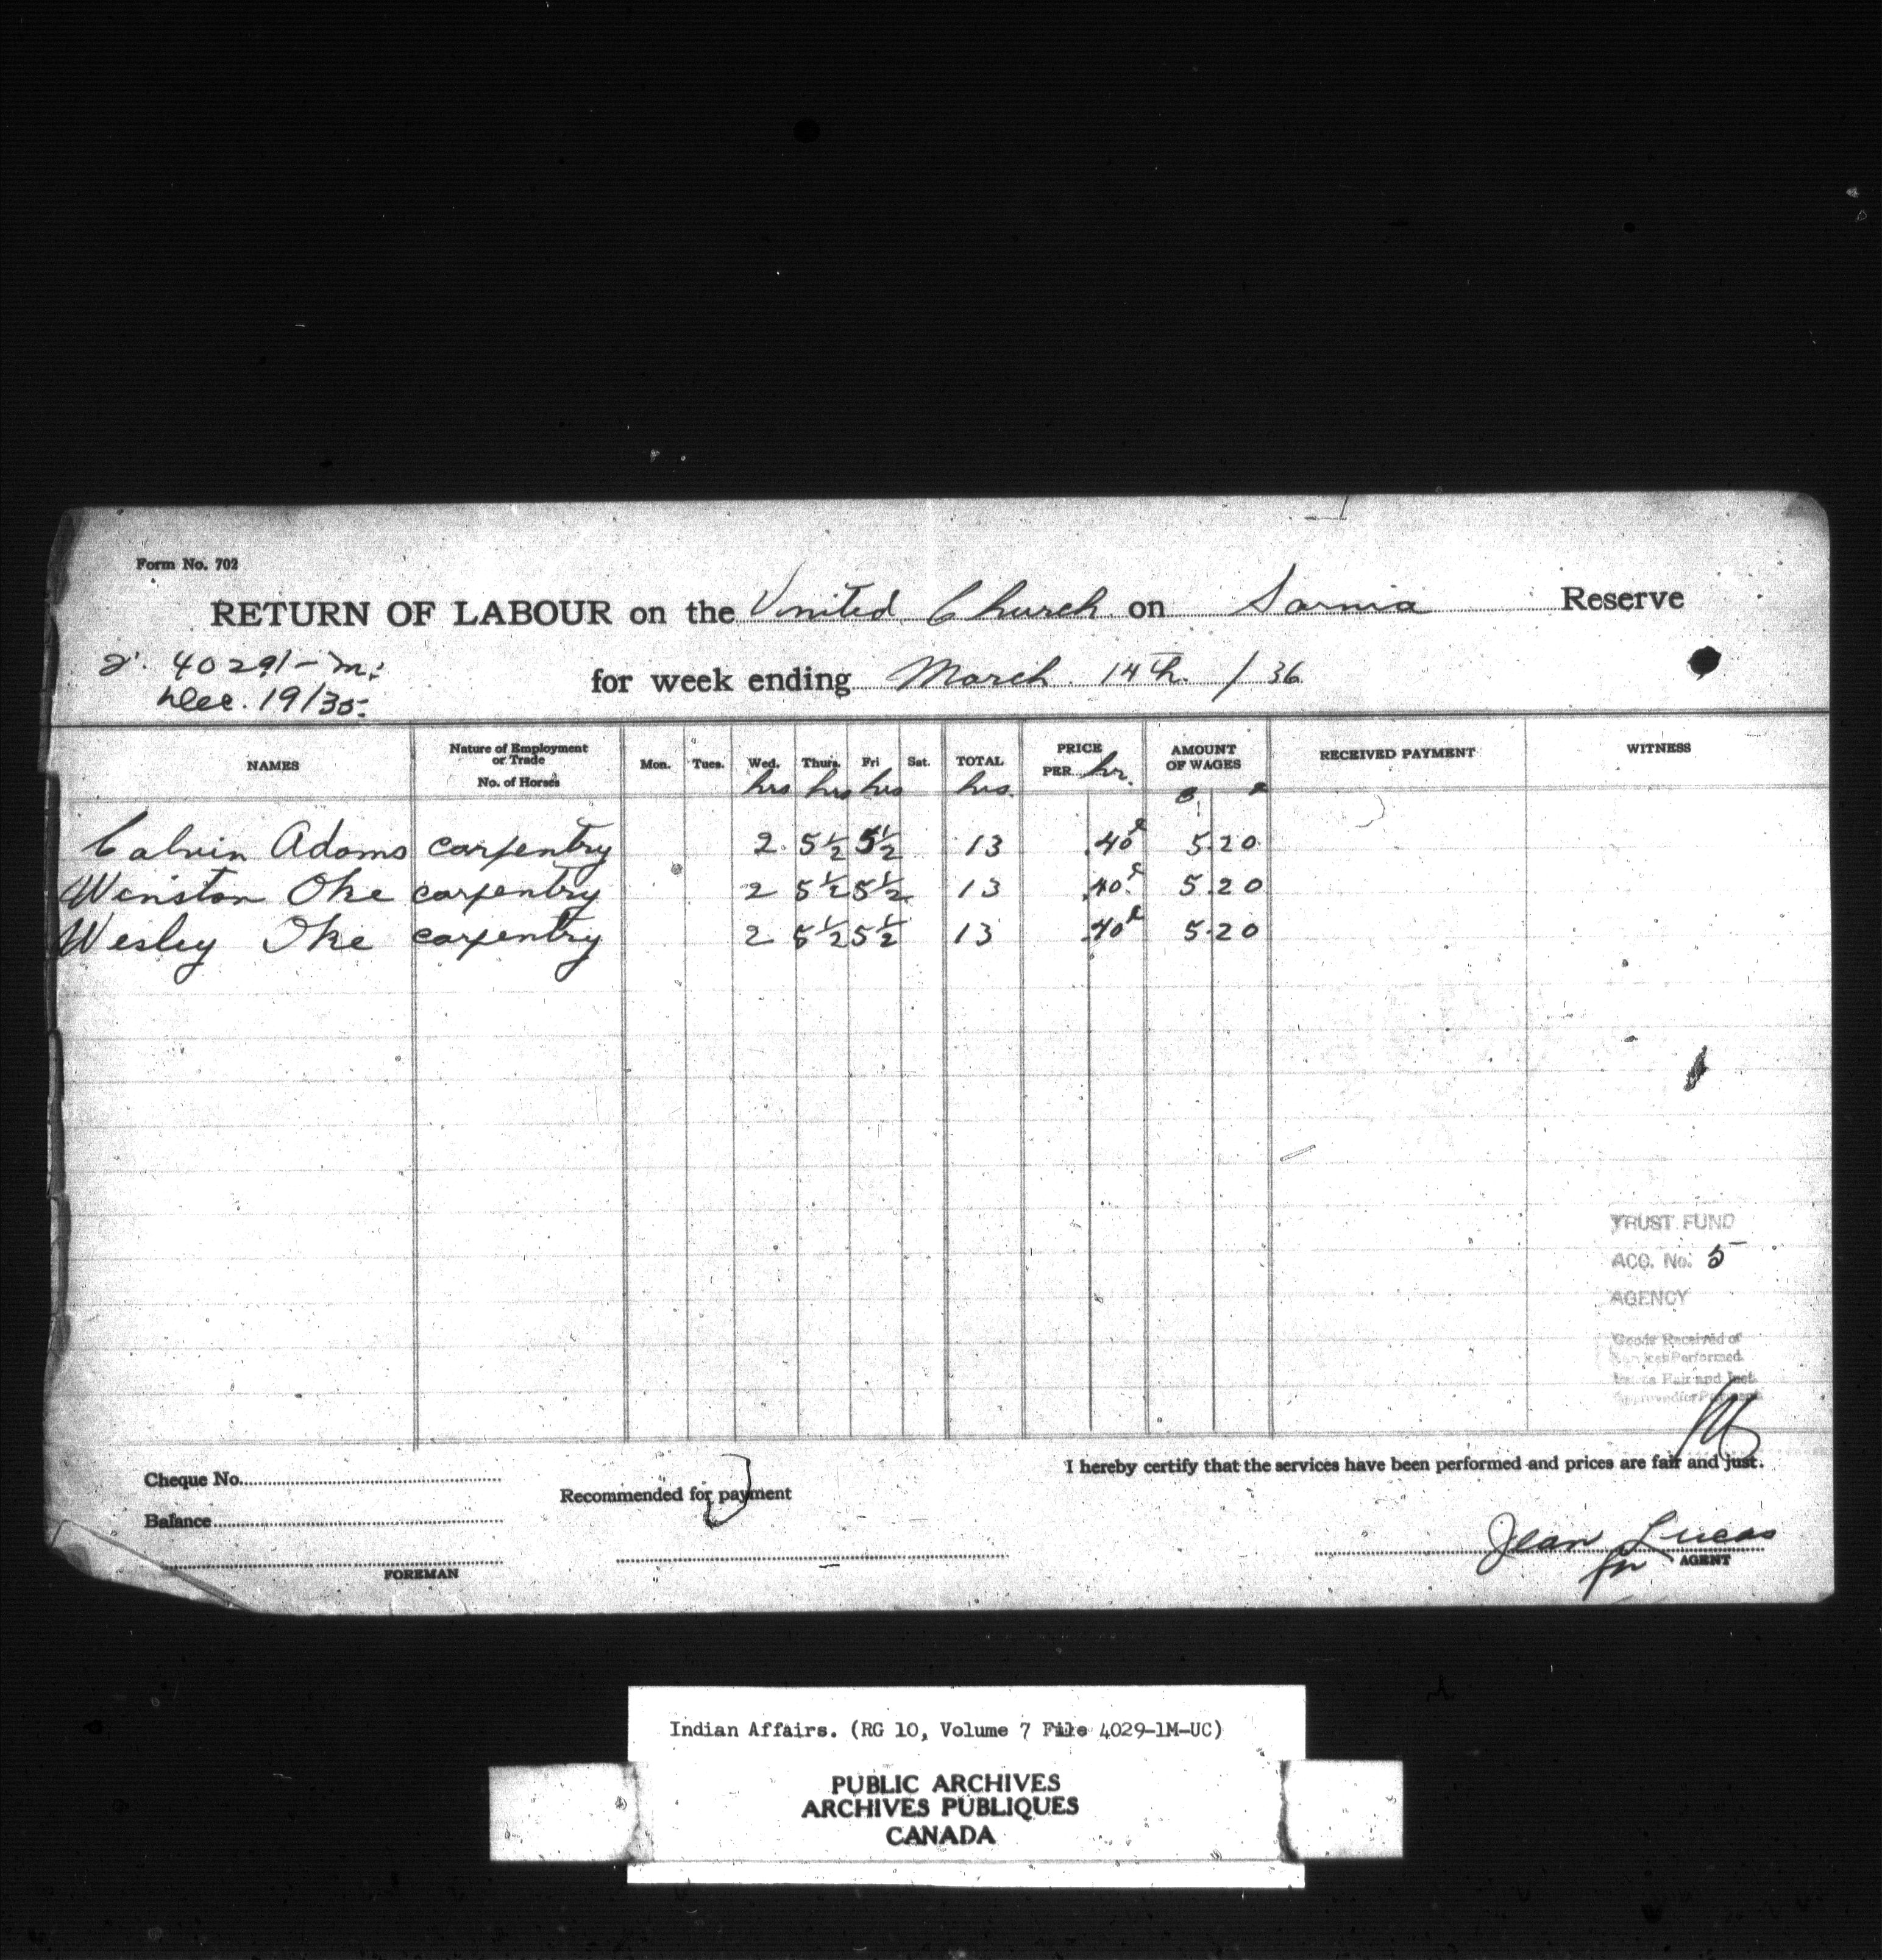 Form No. 702
RETURN OF LABOUR on the United Church on Sarnia Reserve
40291-m:
Dec. 19/35.
for week ending March 14th. / 36
NAMES Nature of Employment or Trade No. of Horses Mon. Tues. Wed. hrs Thurs. hrs Fri hrs Sat. TOTAL hrs. PRICE PER hr. AMOUNT OF WAGES RECEIVED PAYMENT WITNESS
Calvin Adams carpentry 2 5½ 5½ 13 .40¢ 5.20
Winston Oke carpentry 2 5½ 5½ 13 .40¢ 5.20
Wesley Oke carpentry 2 5½ 5½ 13 .40¢ 5.20
TRUST FUND
ACC. No. 5
AGENCY
Goods Received or
Services Performed
Fair and Just
Approved for Payment
I hereby certify that the services have been performed and prices are fair and just.
Cheque No.
Recommended for payment
Balance
Jean Lucas
for AGENT
FOREMAN
Indian Affairs. (RG 10, Volume 7 File 4029-1M-UC)
PUBLIC ARCHIVES
ARCHIVES PUBLIQUES
CANADA